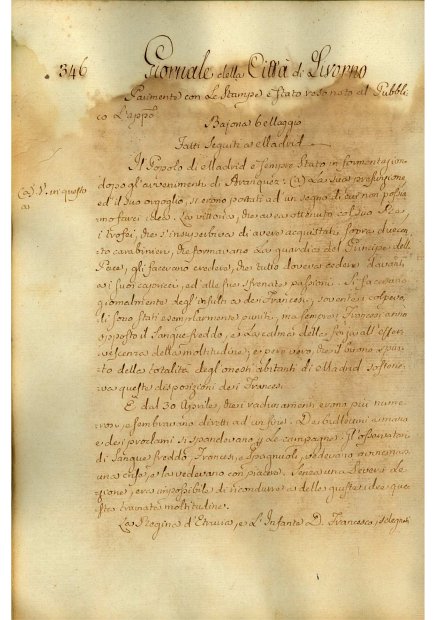 346
Giornale della Città di Livorno
Parimente con Le Stampe è stato reso noto al Pubbli-
co L'app.
Bajona 6 Maggio
Fatti Seguiti a Madrid
Il Popolo di Madrid è sempre Stato in fermentazione
dopo gl'avvenimenti d'Aranquez: (a) La Sua presunzione
ed il Suo orgoglio, si erono portati ad un segno di cui non possia-
mo farci idea. La vittoria, che aveva ottenuto col Suo Re,
i trofei, che
carabinieri, che formavano La Guardia del Principe della
Pace, gli facevano credere, che tutto doveva cedere davanti
a' suoi capricci, ed alle sue sfrenate passioni. Si facevano
giornalmente degl'insulti a dei Francesi; sovente i colpevo-
li sono Stati esemplarmente puniti, ma sempre i Francesi anno
opposto il Sangue freddo, e La calma della forza all'effer-
vescenza della moltitudine; è pure vero, che il buono spiri-
to della totalità degl'onesti abitanti di Madrid
va queste disposizioni dei Francesi.
E dal 30 Aprile, che i radunamenti erono più nume-
rosi, e sembravano diretti ad un fine. Dei bullettini a mano
e dei proclami si spandevano p le campagne. Gl'osservatori
di Sangue freddo, Francesi, e Spagnuoli, vedevano avvicinarsi
una crisi, e la vedevano con piacere. Senza una Severa le-
zione, era impossibile di ricondurre a delle giuste idee que-
sta traviata moltitudine.
La Regina d'Etruria, e L'Infante D. Francesco,
(a) V. in questo
a